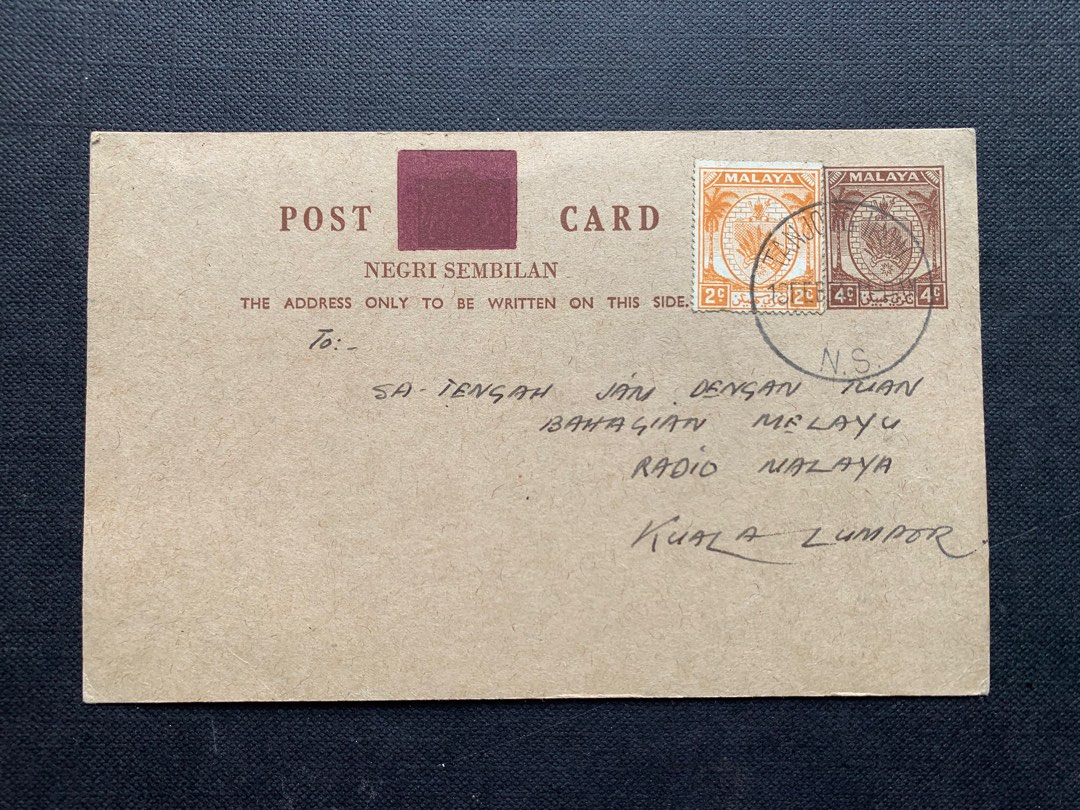 MALAYA MALAYA
POST CARD
NEGRI SEMBILAN
2¢ 2¢ 4¢ 4¢
THE ADDRESS ONLY TO BE WRITTEN ON THIS SIDE.
N.S.
To:-
SA-TENGAH JAM DENGAN TUAN
BAHAGIAN MELAYU
RADIO MALAYA
KUALA LUMPOR.